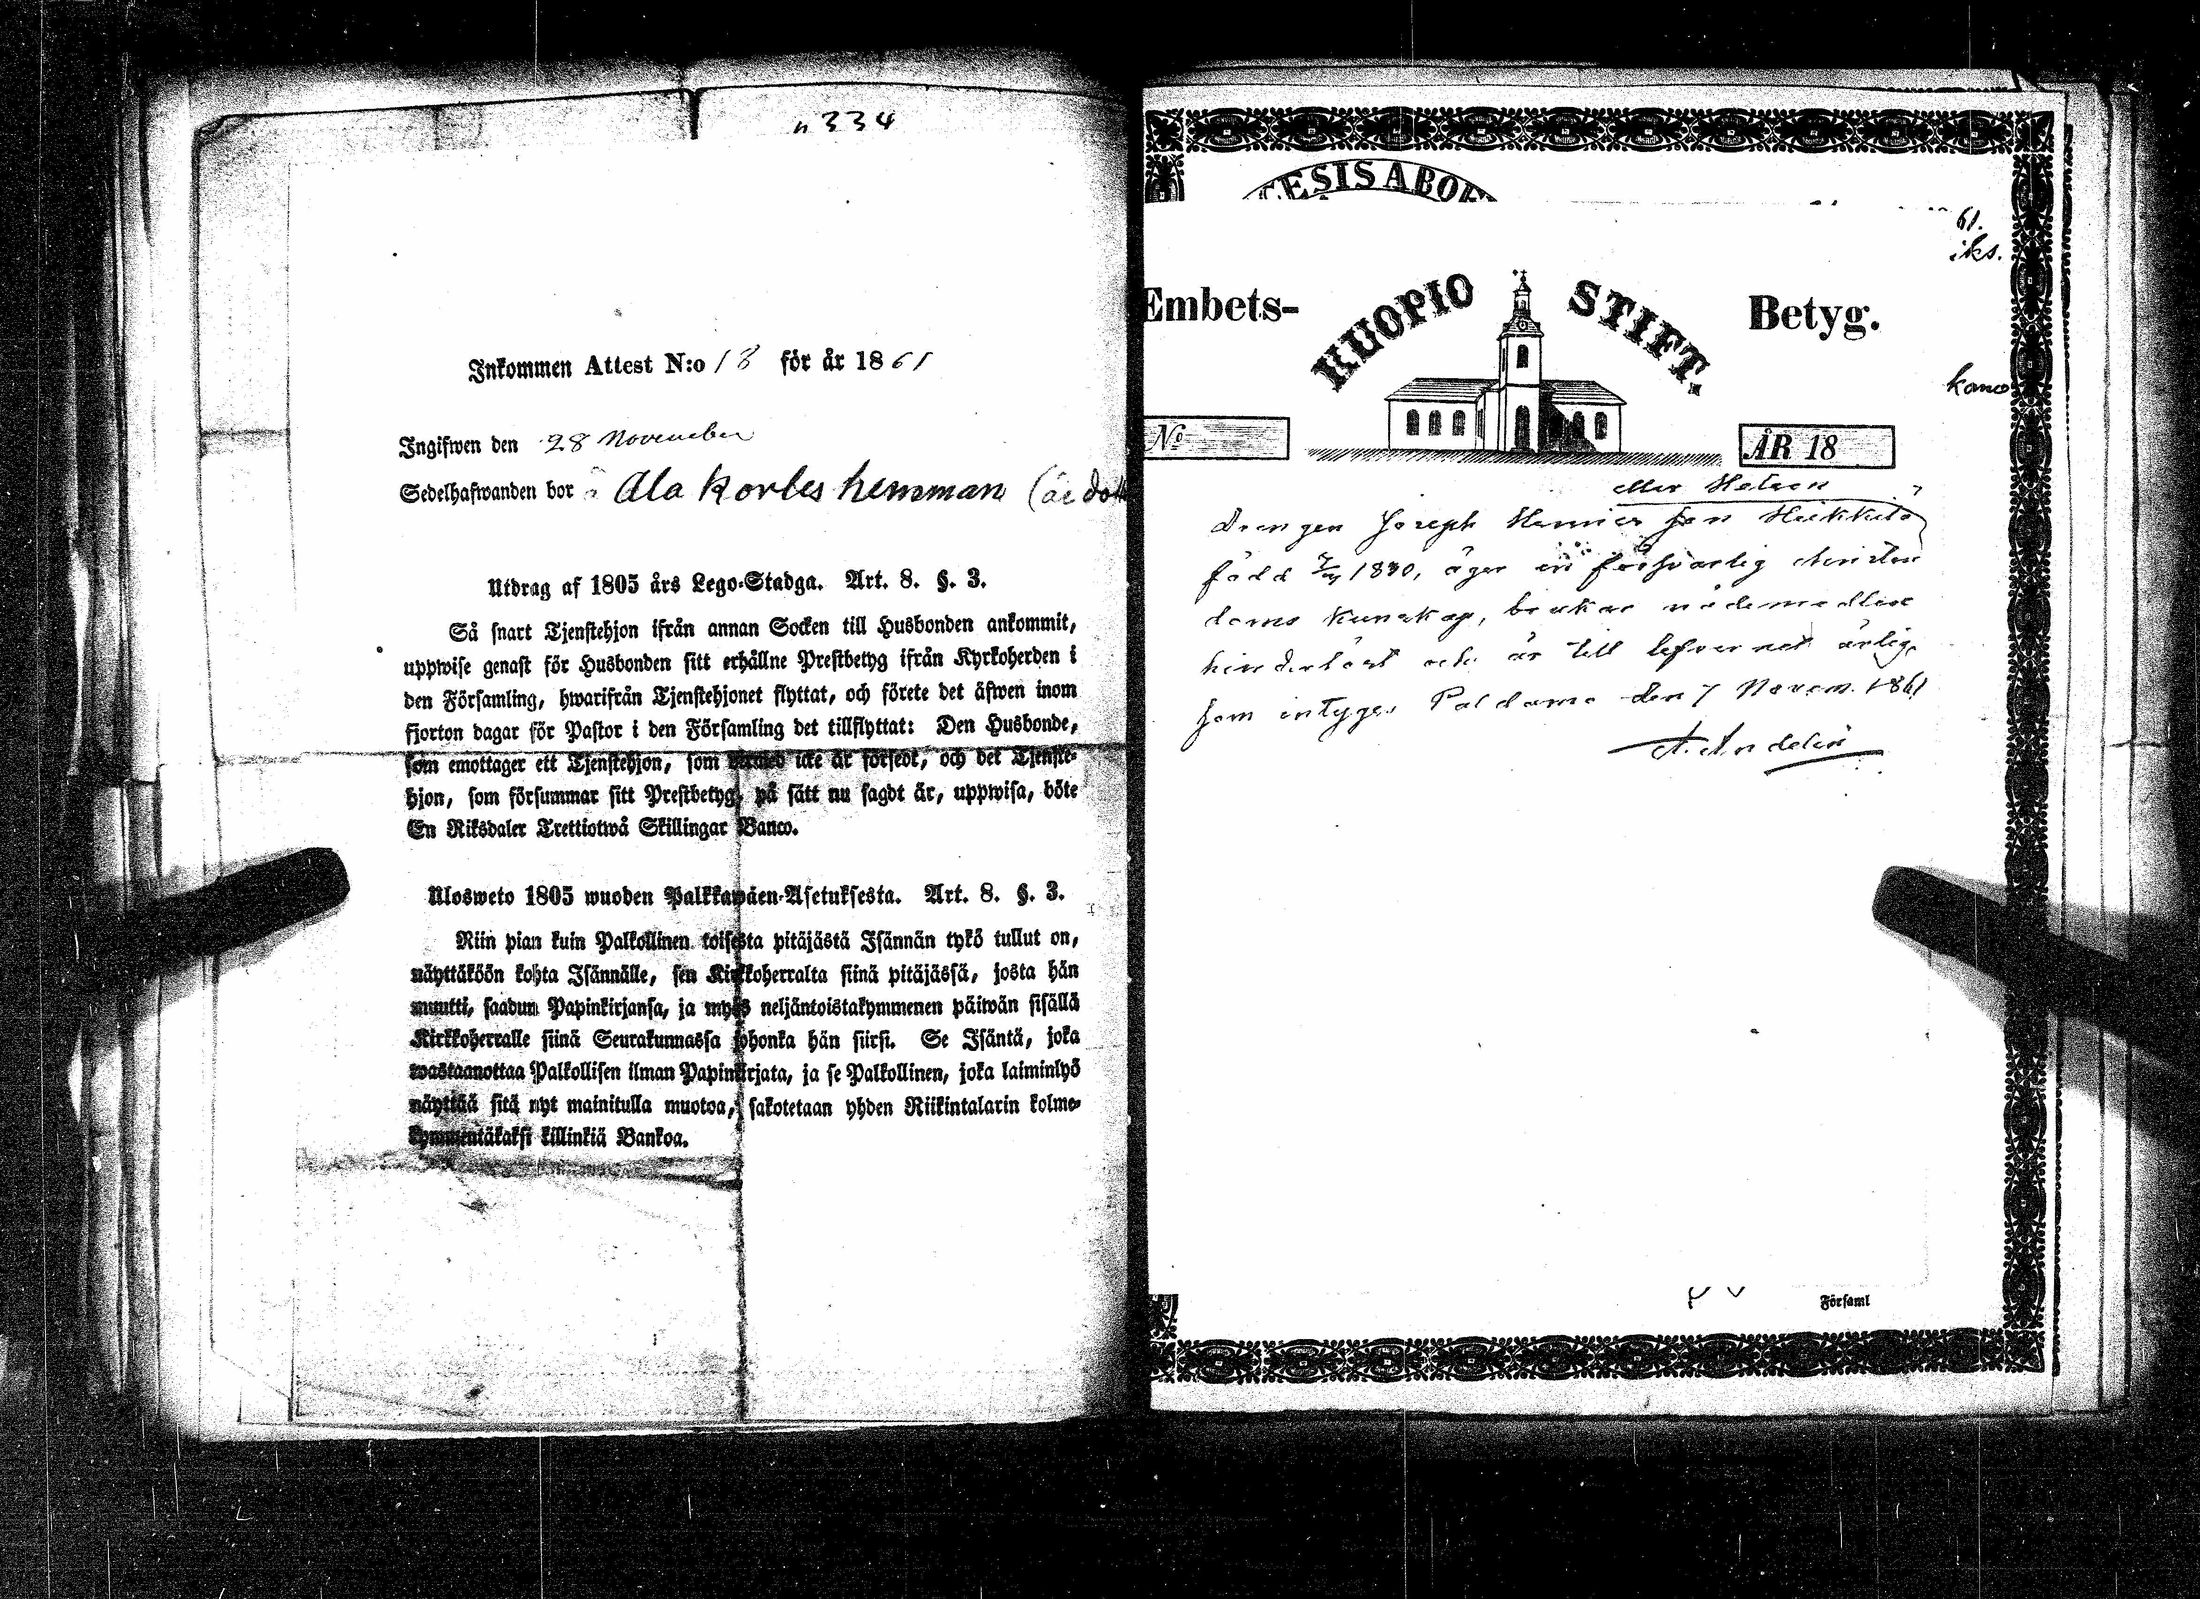 n 334
Inkommen Attest N:o 18 för år 1861
Ingifwen den 28 November
Sedelhafwanden bor å Ala korbes hemman (är dott
Utdrag af 1805 års Lego-Stadga. Art. 8. §. 3.
Så snart Tjenstehjon ifrån annan Socken till Husbonden ankommit,
uppwise genast för Husbonden sitt erhållne Prestbetyg ifrån Kyrkoherden i
den Församling, hwarifrån Tjenstehjonet flyttat, och förete det äfwen inom
fjorton dagar för Pastor i den Församling det tillflyttat: Den Husbonde,
som emottager ett Tjenstehjon, som dermed icke är försedt, och det Tjenste-
hjon, som försummar sitt Prestbetyg, på sätt nu sagdt är, uppwisa, böte
En Riksdaler Trettiotwå Skillingar Banco.
Ulosweto 1805 wuoden Palkkawäen-Asetuksesta. Art. 8. §. 3.
Niin pian kuin Palkollinen toisesta pitäjästä Isännän tykö tullut on,
näyttäköön kohta Isännälle, sen Kirkkoherralta siinä pitäjässä, josta hän
muutti, saadun Papinkirjansa, ja myös neljäntoistakymmenen päiwän sisällä
Kirkkoherralle siinä Seurakunnassa johonka hän siirsi. Se Isäntä, joka
wastaanottaa Palkollisen ilman Papinkirjata, ja se Palkollinen, joka laiminlyö
näyttää sitä nyt mainitulla muotoa, sakotetaan yhden Riikintalarin kolme-
kymmentäkaksi killinkiä Bankoa.
CESIS ABOE
61.
iks.
Embets- KUOPIO STIFT. Betyg.
kano
No ÅR 18
eller
Drengen Joseph Henrics son Heikkilä
född 1830, äger en försvarlig christen
doms kunskap, brukar nådemedlen
hinderlöst och är till lefvernet ärlig,
som intygas Paldamo den 7 Novem. 1861
A. Andelin
Församl